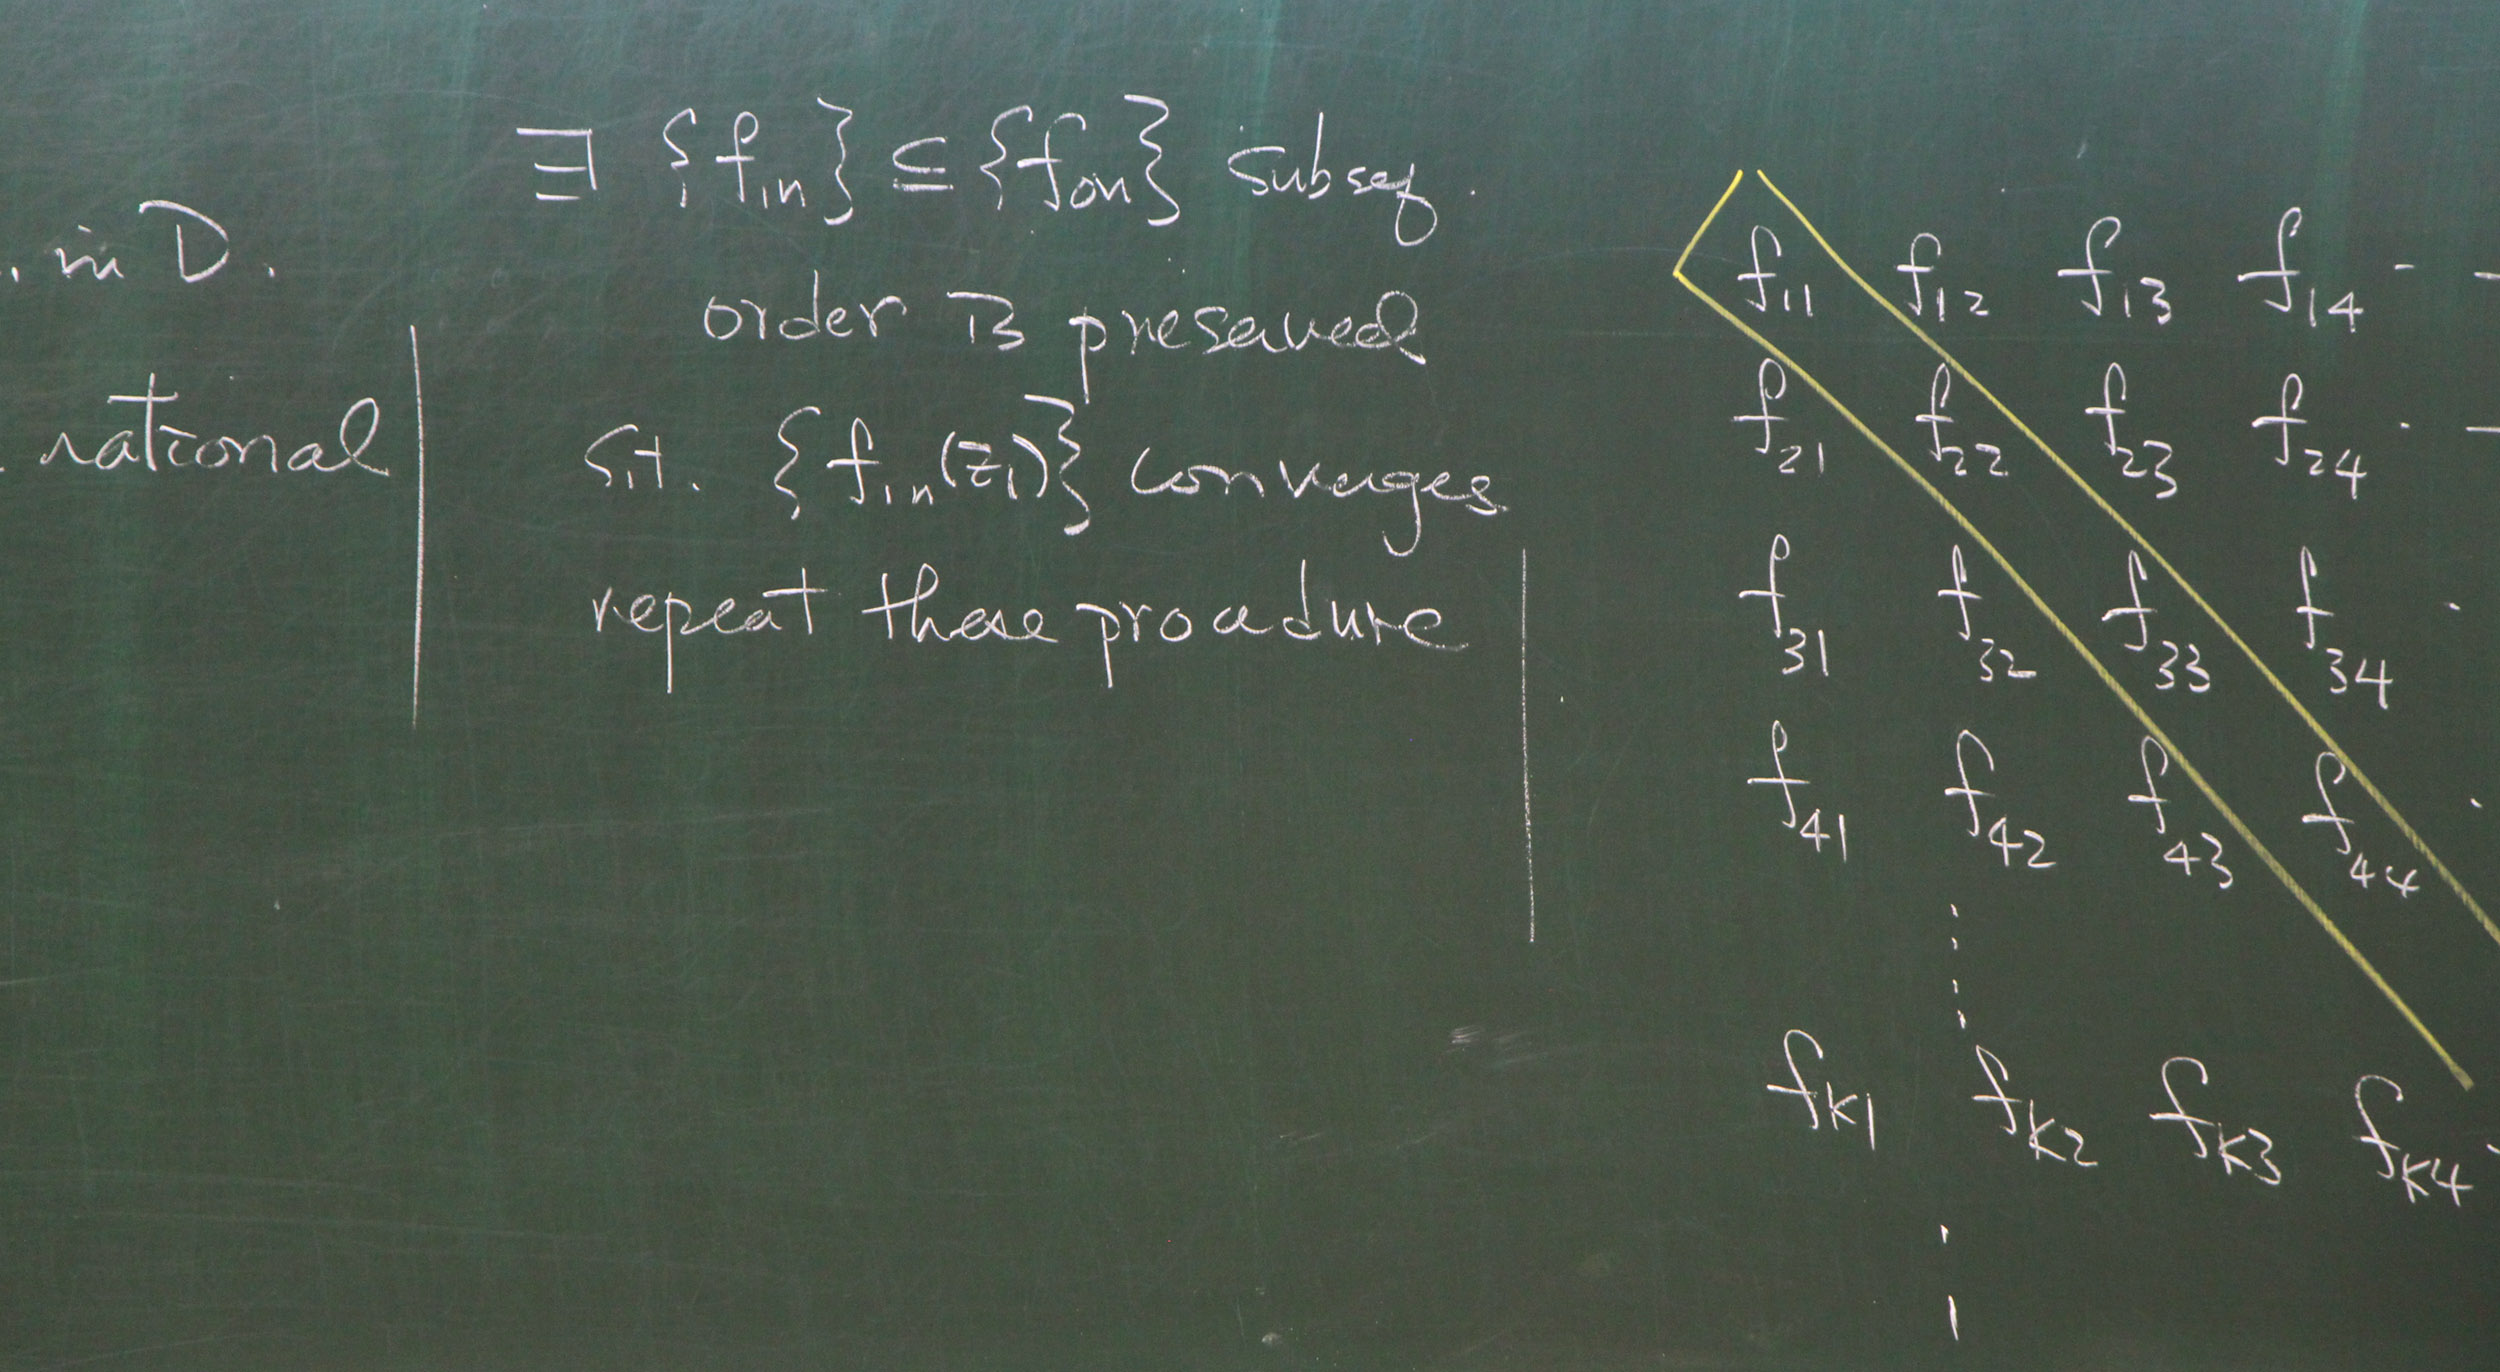 . in D.
rational
∃ {f₁ₙ} ⊆ {f₀ₙ} subseq.
order is preserved
s.t. {f₁ₙ(z₁)} converges
repeat these procedure
f₁₁ f₁₂ f₁₃ f₁₄ - -
f₂₁ f₂₂ f₂₃ f₂₄ · -
f₃₁ f₃₂ f₃₃ f₃₄ ·
f₄₁ f₄₂ f₄₃ f₄₄ ·
fₖ₁ fₖ₂ fₖ₃ fₖ₄ -